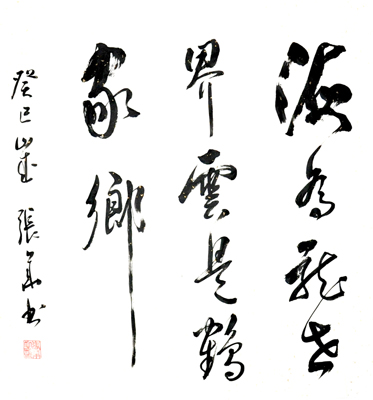 海為龍世
界雲是鶴
家鄉
癸巳歲 張 書